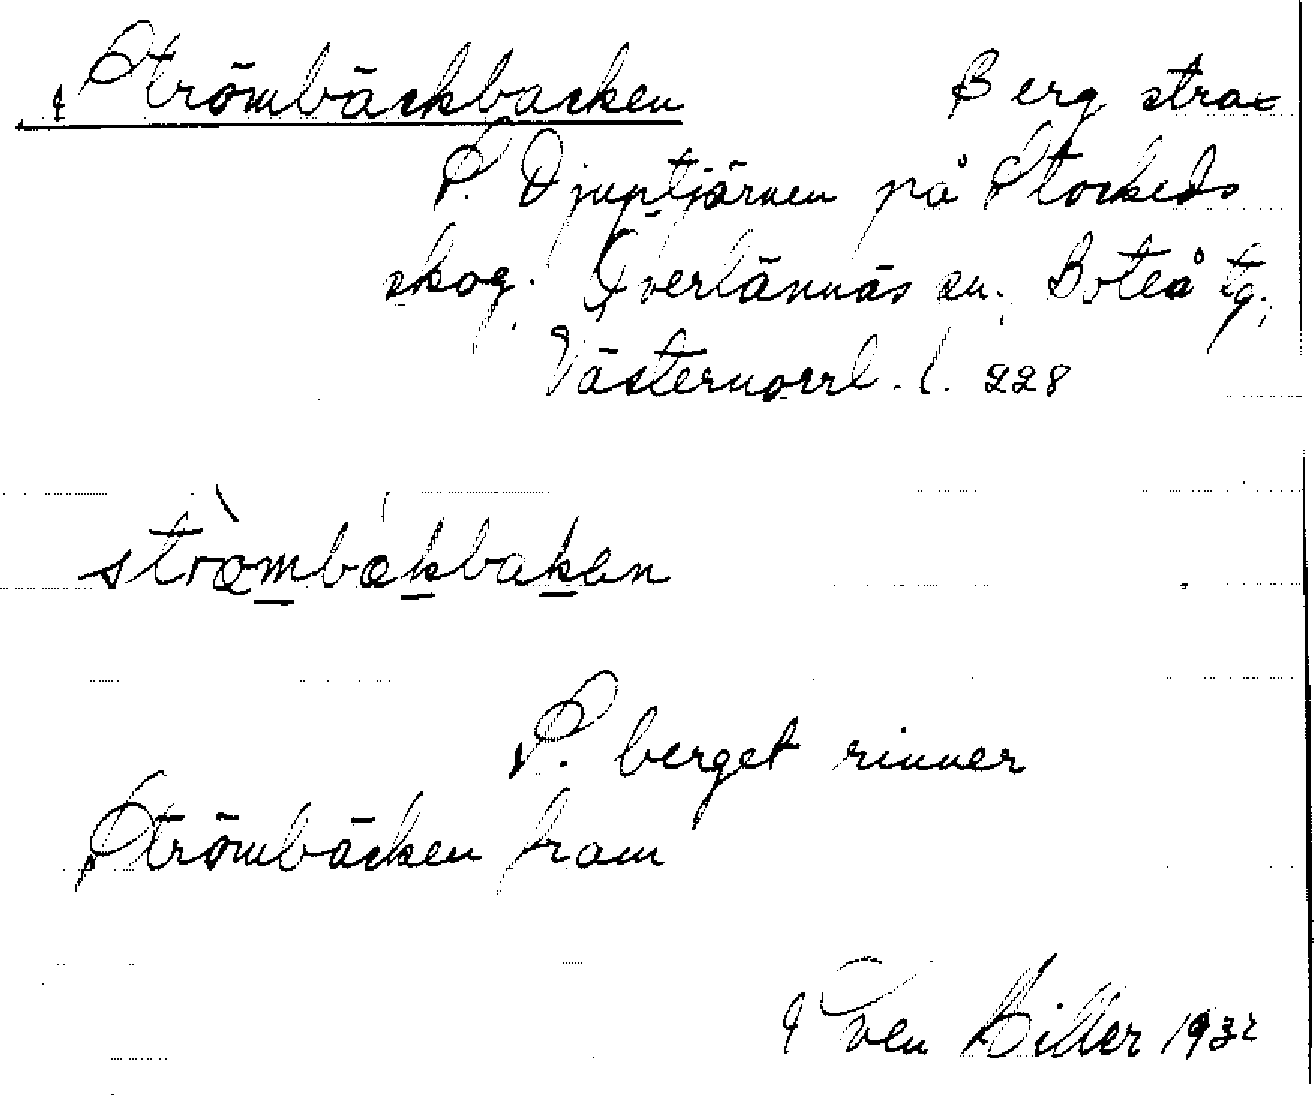 Strömbäckbacken Berg strax
S. Djuptjärnen på Stockeds
skog. Överlännäs sn. Boteå tg.
Västernorrl. l. 228
strœ̀mbækbakən
S. berget rinner
Strömbäcken fram
Sven Hiller 1932